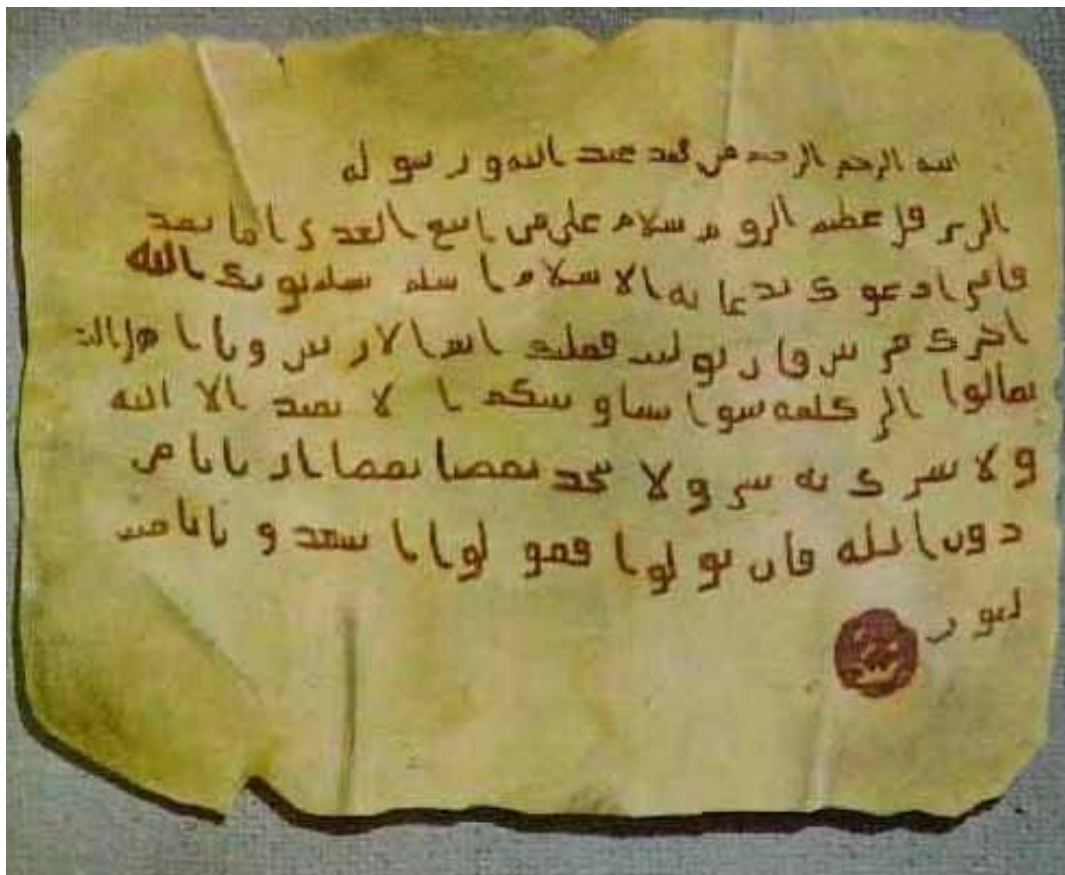 الله الرحمن الرحيم من محمد عبد الله ورسوله
الى هرقل عظيم الروم سلام على من اتبع الهدى اما بعد
فانى ادعوك بدعايه الاسلام اسلم تسلم يوتك الله
اجرك مرتين فان توليت فعليك اثم الاريسين ويا اهل الكتب
تعالوا الى كلمه سوا بيننا وبينكم الا نعبد الا الله
ولا نشرك به شى ولا يتخذ بعضنا بعضا اربابا من
دون الله فان تولوا فقولوا اشهدوا بانا مسـ
لمون